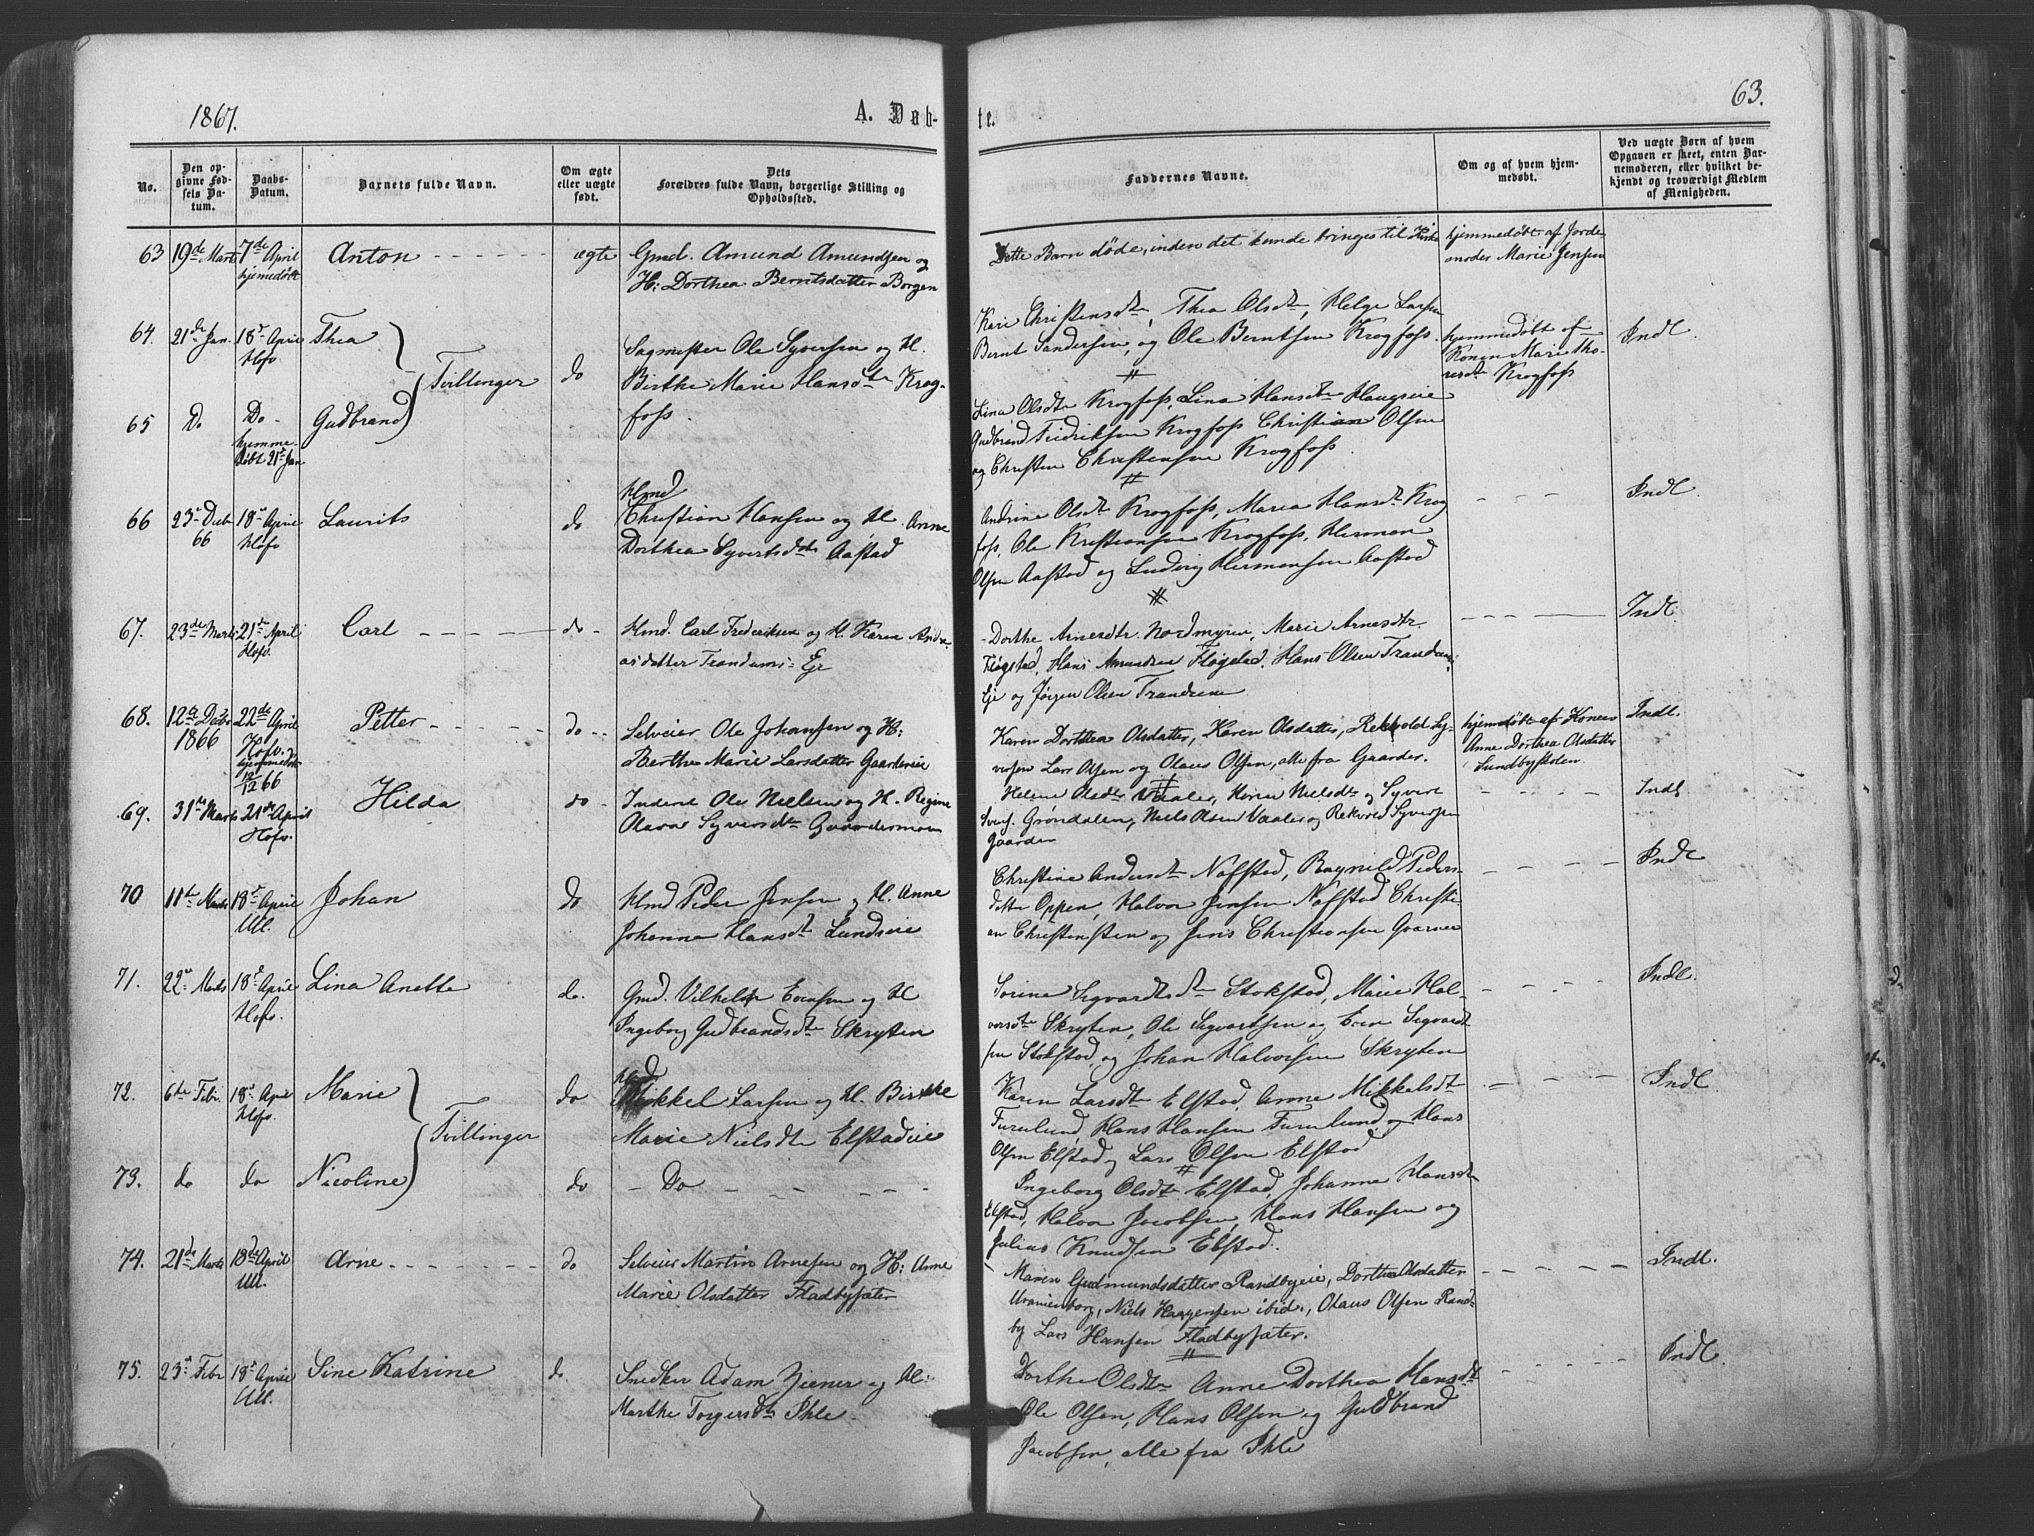 1867.
A. Døb-
te.
63.
No.
Den op-
givne Fød-
sels Da-
tum.
Daabs-
Datum.
Barnets fulde Navn.
Om ægte
eller uægte
født.
Dets
Forældres fulde Navn, borgerlige Stilling og
Opholdssted.
Faddernes Navne.
Om og af hvem hjem-
medøbt.
Ved uægte Børn af hvem
Opgaven er skeet, enten Bar-
nemoderen, eller hvilket be-
kjendt og troværdigt Medlem
af Menigheden.
63 19de Marts 7de April Anton ægte Gmd. Amund Amundsen og
hjemedøbt H: Dorthea Berntsdatter Borgen
Dette Barn døde, inden det kunde bringes til Kirke
hjemmedøbt af Jorde
moder Marie Jensen
64. 21de Jan. 18d April Thea
Hofv
Tvillinger do
Sagmester Ole Syversen og H.
Birthe Marie Hansdtr Krog-
foss.
Kari Christensdtr, Thea Olsdtr, Helge Larsen
Bernt Sandersen, og Ole Berntsen Krogfoss.
hjemmedøbt af
Konen Marie Tho-
resdtr Krogfoss
Indl.
65 Do Do Gudbrand
hjemme-
døbt 21de Jan
Lina Olsdtr Krogfoss, Lina Hansdtr Haugseie
Gudbrand Fredriksen Krogfoss Christian Olsen
og Christen Christensen Krogfoss.
66 23d Decbr 18d April Laurits do
66 Hofv
Hmd
Christian Hansen og H. Anne
Dorthea Syvertsdtr Aastad
Andrine Olsdt Krogfoss, Maria Hansdtr Krog
foss, Ole Kristiansen Krogfoss, Herman
Olsen Aastad og Ludvig Hermansen Aastad
Indl.
67. 23de Marts 21de April Carl do
Hofv.
Hmd. Carl Frederiksen og H. Karen Andre-
asdatter Trandums Eje
Dorthe Arnesdtr Nordmyrin, Marie Arnesdtr
Fløgstad, Hans Amundsen Fløgstad. Hans Olsen Trandum-
Eje og Jørgen Olsen Trandum
Indl
68. 12te Decbr 22de April Petter do
1866 Hofv.
hjemmedøbt
12/12 66
Selveier Ole Johansen og H:
Berthe Marie Larsdatter Gaardereie
Karen Dorthea Olsdatter, Karen Olsdatter, Rekvold Sy-
versen Lars Olsen og Olaus Olsen, alle fra Gaarder.
hjemmedøbt af Konen
Anne Dorthea Olsdatter
Lundbyskolen
Indl.
69. 31te Marts 21de April Hilda do
Hofv.
Inderst Ole Nielsen og H. Regine
Olava Syversdtr Gaardermoen
Helene Olsdtr Vaaler, Karen Nielsdtr og Syver
Svens. Grøndalen, Niels Olsen Vaaler og Rekvold Syversen
Gaarder
Indl
70 11te Marts 18d April Johan do
Ull.
Hmd Peder Jensen og H. Anne
Johanne Hansdt Lundseie
Christine Andersdt Nafstad, Ragnild Peders-
datter Oppen, Halvor Jensen Nafstad Christi-
an Christensen og Jens Christiansen
Indl
71. 22d Marts 18d April Lina Anette do.
Hofv.
Gmd. Vilhelm Evensen og H
Ingeborg Gudbrandsdtr Skrytin
Sorine Sigvardtsdtr Stokstad, Marie Hal-
vorsdtr Skryten, Ole Sigvartsen og Even Sigvardt
sen Stokstad, og Johan Halvorsen Skryten
Indl.
72. 6te Febr. 18d April Marie do
Hofv.
Tvillinger
Hmd
Mikkel Larsen og H. Birthe
Marie Nielsdtr Elstadeie
Karen Larsdtr Elstad, Anne Mikkelsdtr
Furulund, Hans Hansen Furulund, og Hans
Olsen Elstad og Lars Olsen Elstad
Indl.
73. do do Nicoline do Do
Ingeborg Olsdtr Elstad, Johanne Hansdtr
Elstad, Halvor Jacobsen, Hans Hansen og
Julius Knudsen Elstad.
74. 21de Marts 18de April Arne do
Ull.
Selveier Martin Arnesen og H: Anne
Marie Olsdatter Fladbysæter
Maren Gudmundsdatter Randbyeie, Dorthea Olsdatter
Uranienborg, Niels Haagensen ibid., Olaus Olsen Rand-
by Lars Hansen Fladbysæter.
Indl.
75. 23d Febr 18d April Sine Katrine do
Ull.
Snedker Adam Ziener og H:
Marthe Torgersdtr Ihle.
Dorthe Olsdtr Anne Dorthea Hansdt
Ole Olsen, Hans Olsen og Guldbrand
Jacobsen, alle fra Ihle
Indl.